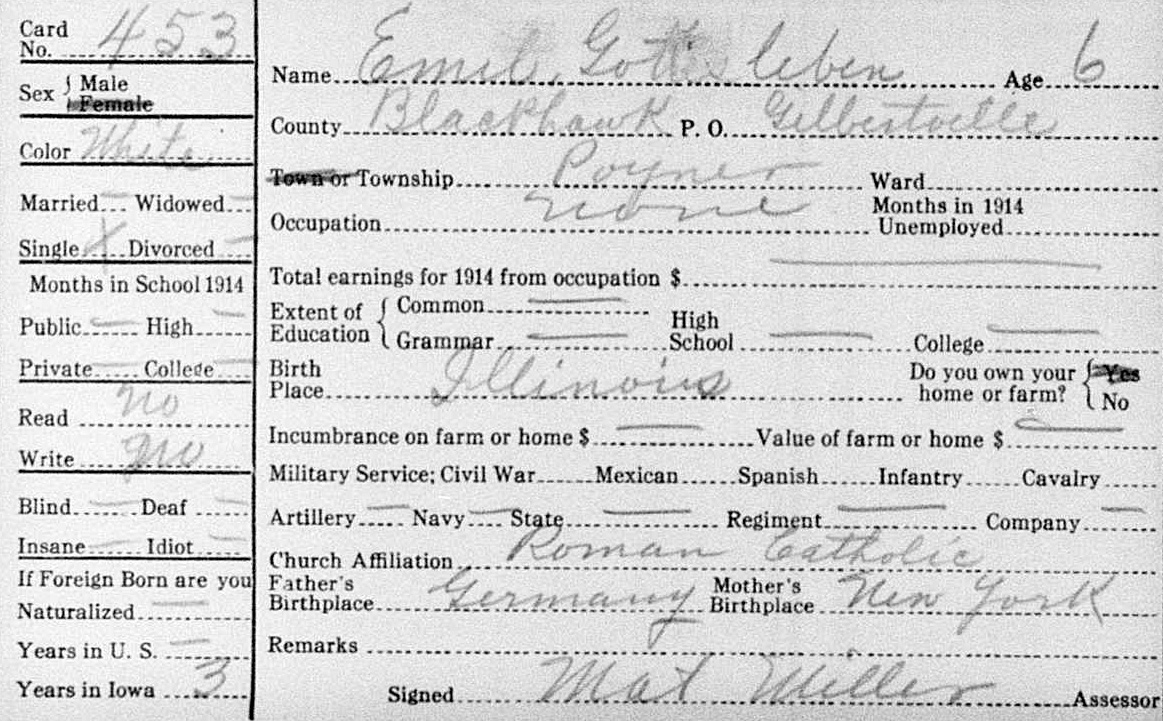 Card No. 453
Sex { Male
Female
Color White
Married Widowed
Single X Divorced
Months in School 1914
Public High
Private College
Read no
Write no
Blind Deaf
Insane Idiot
If Foreign Born are you
Naturalized
Years in U. S.
Years in Iowa 3
Name Emil Gottsleben Age 6
County Blackhawk P. O. Gilbertville
Town or Township Poyner Ward
Occupation none Months in 1914 Unemployed
Total earnings for 1914 from occupation $
Extent of Education { Common
Grammar High School College
Birth Place Illinois Do you own your home or farm? { Yes
No
Incumbrance on farm or home $ Value of farm or home $
Military Service; Civil War Mexican Spanish Infantry Cavalry
Artillery Navy State Regiment Company
Church Affiliation Roman Catholic
Father's Birthplace Germany Mother's Birthplace New York
Remarks
Signed Mat Miller Assessor